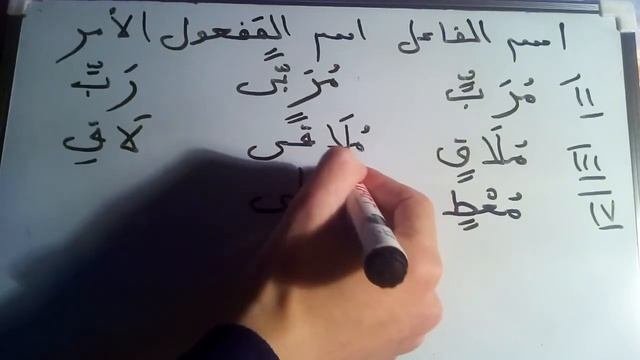 اسم الفاعل اسم المفعول الأمر
II مُرَبٍّ مُرَبًّى رَبِّ
III مُلَاقٍ مُلَاقًى لَاقِ
IV مُعْطٍ